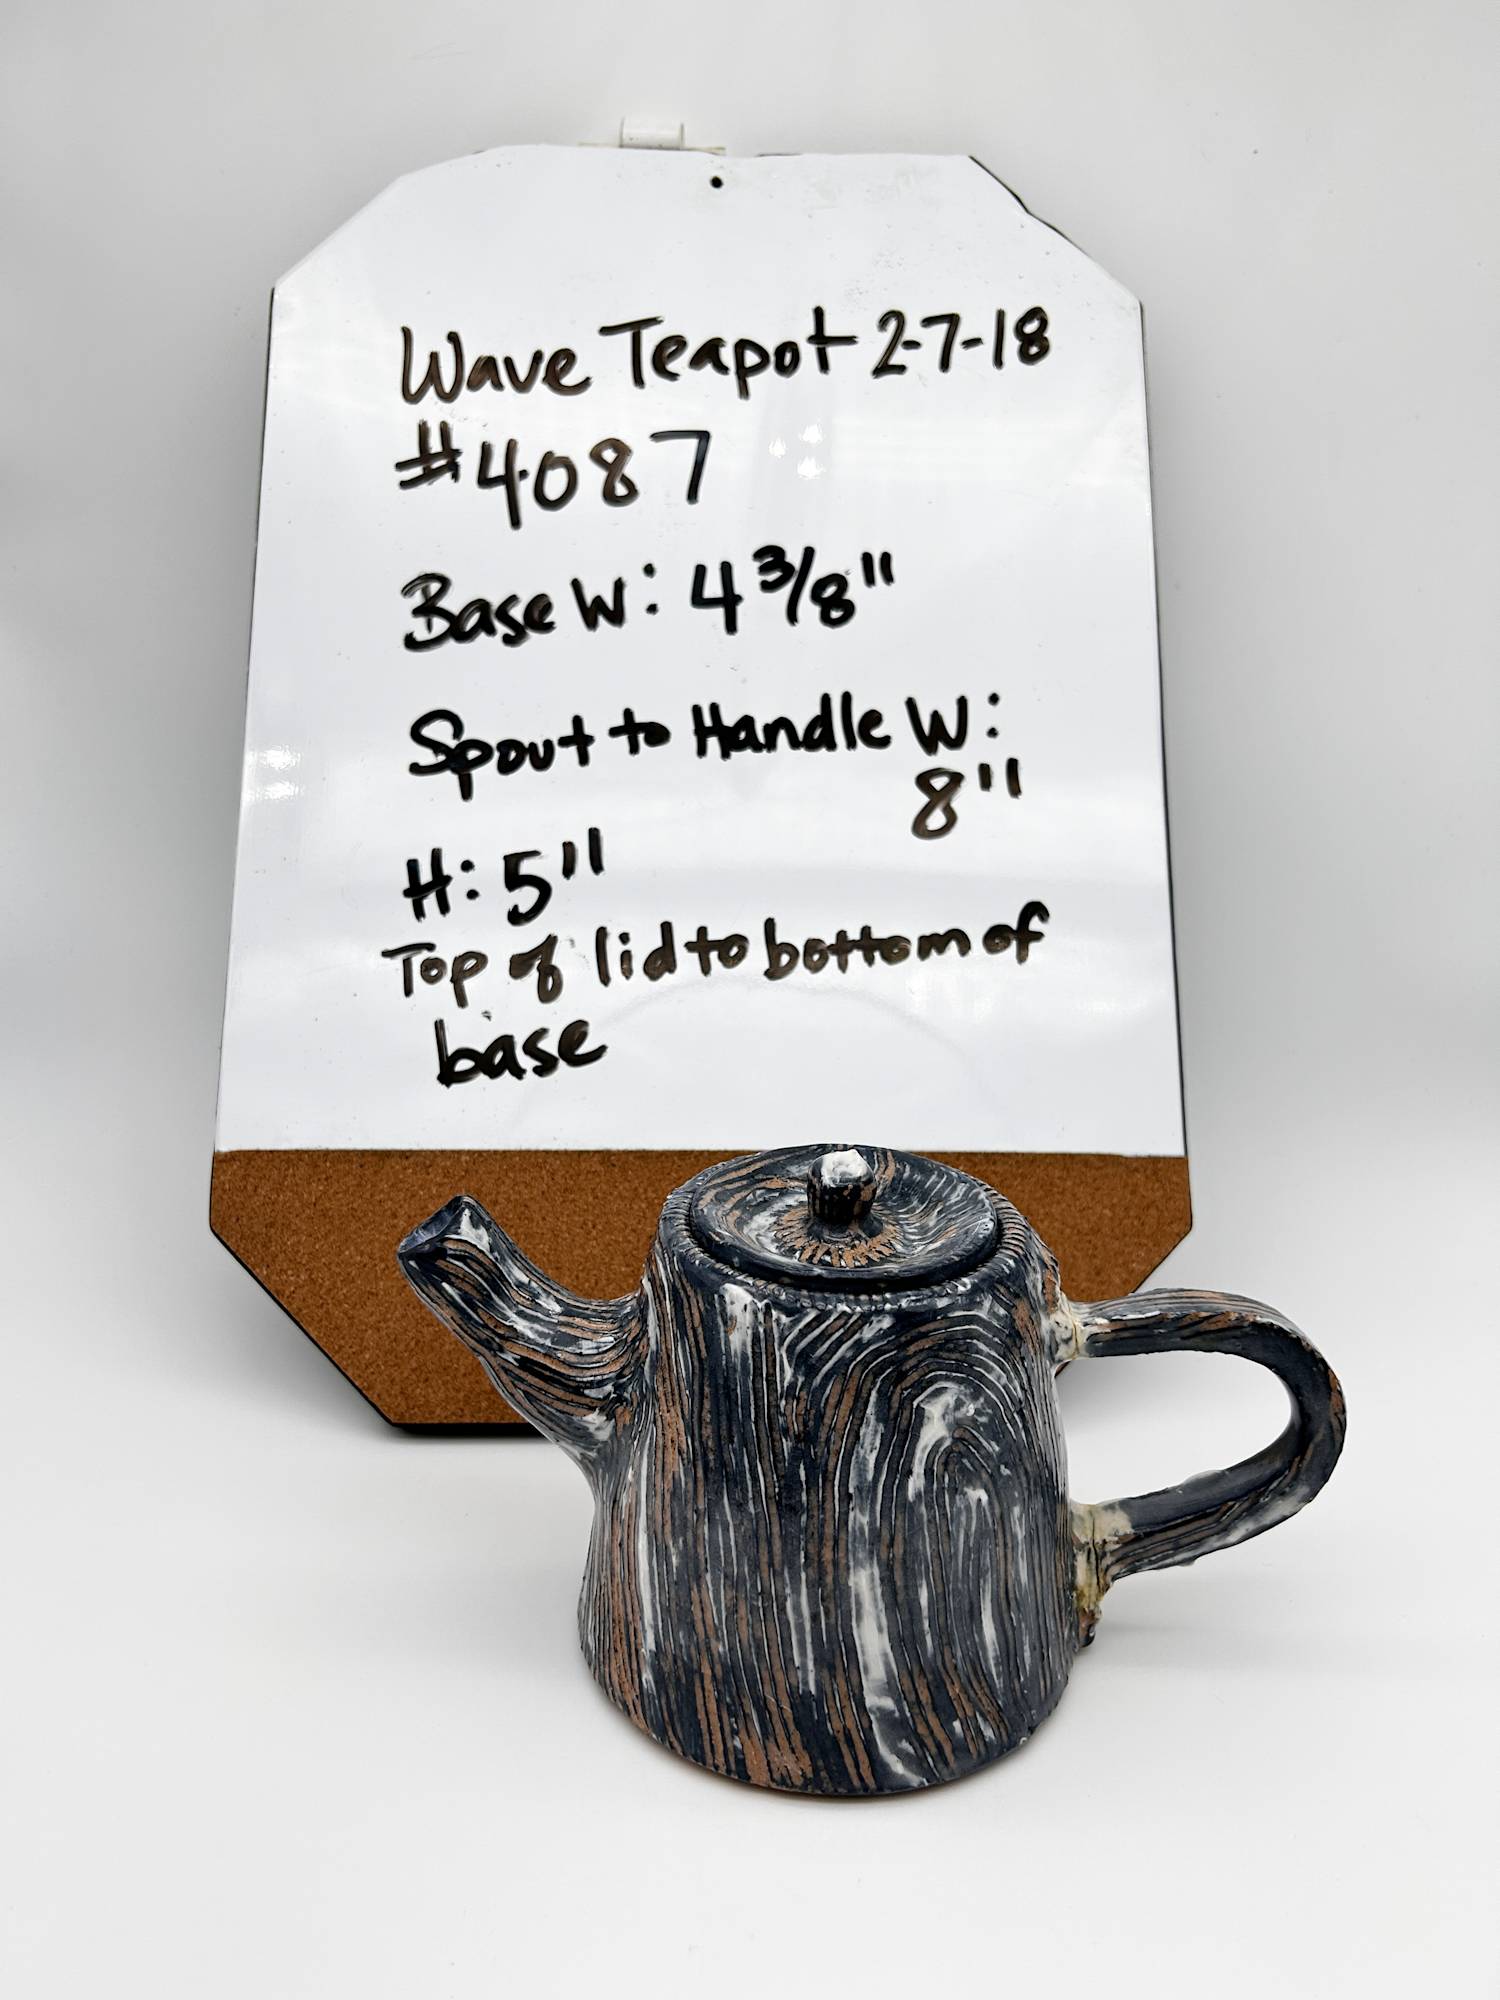 Wave Teapot 2-7-18
#4087
Base W: 4 3/8"
Spout to Handle W:
8"
H: 5"
Top of lid to bottom of
base